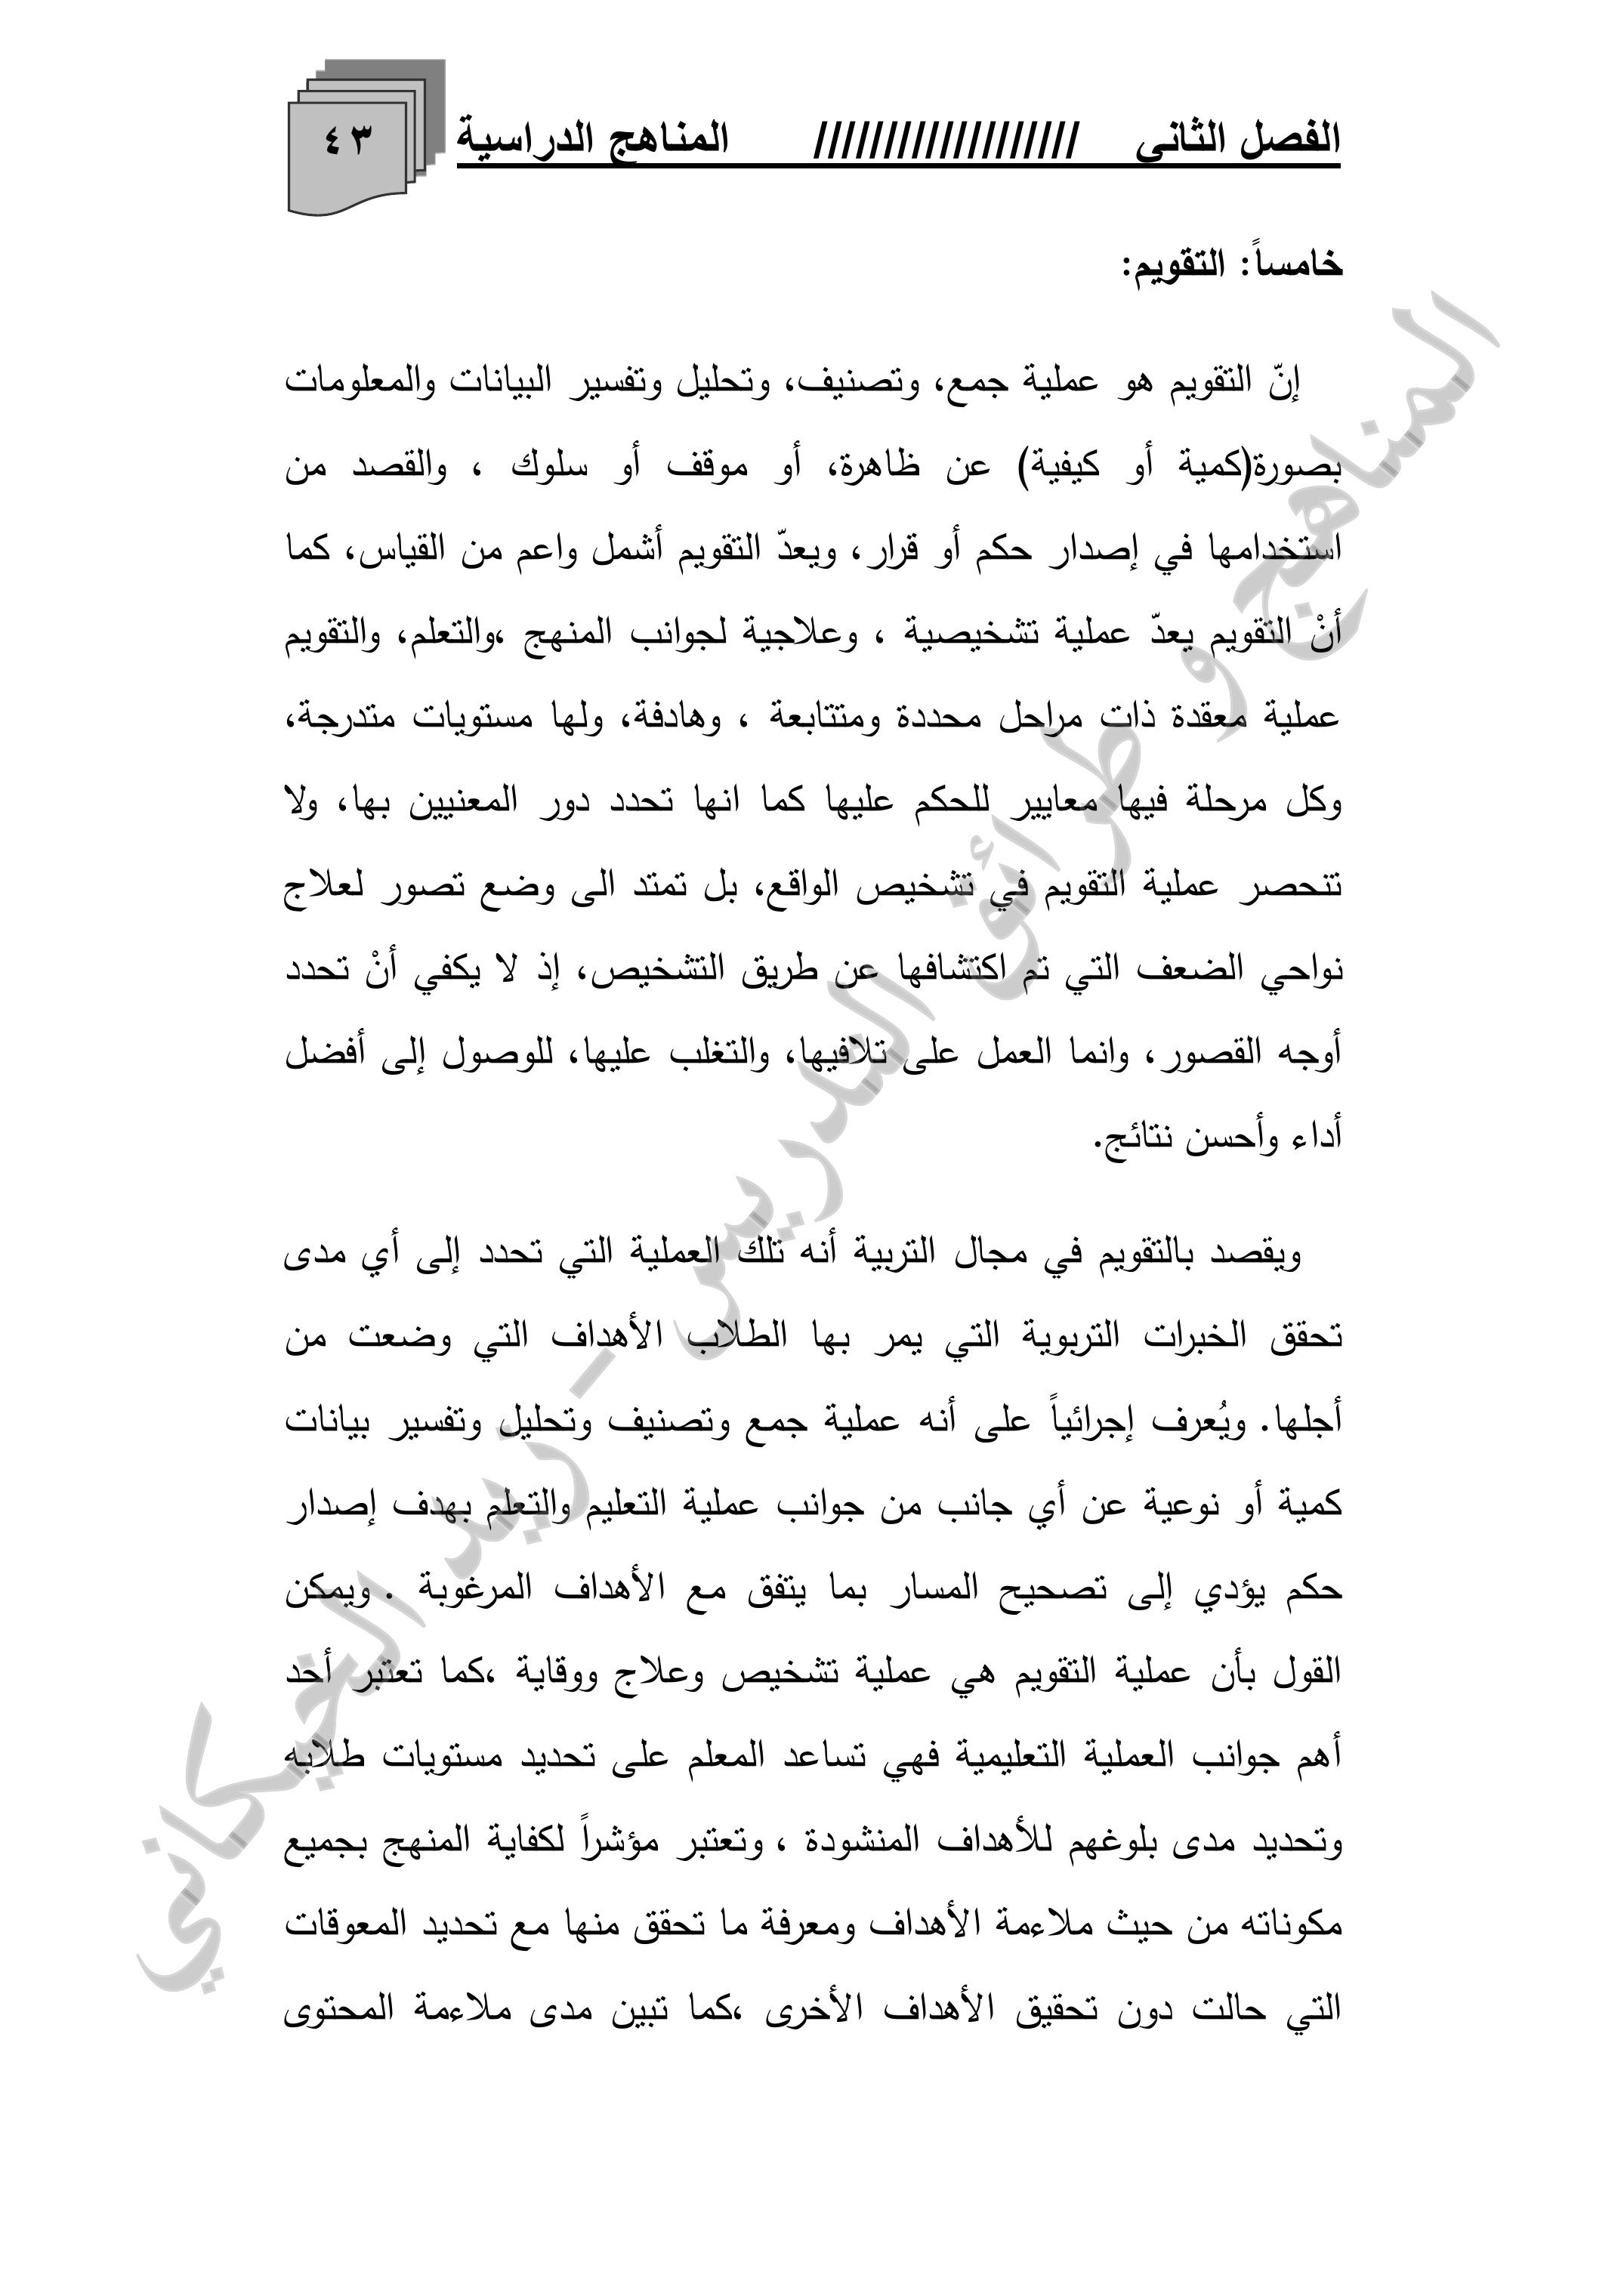 الفصل الثاني /////////////////// المناهج الدراسية ٤٣
خامساً: التقويم:
إنّ التقويم هو عملية جمع، وتصنيف، وتحليل وتفسير البيانات والمعلومات
بصورة(كمية أو كيفية) عن ظاهرة، أو موقف أو سلوك ، والقصد من
استخدامها في إصدار حكم أو قرار، ويعدّ التقويم أشمل واعم من القياس، كما
أنْ التقويم يعدّ عملية تشخيصية ، وعلاجية لجوانب المنهج ،والتعلم، والتقويم
عملية معقدة ذات مراحل محددة ومتتابعة ، وهادفة، ولها مستويات متدرجة،
وكل مرحلة فيها معايير للحكم عليها كما انها تحدد دور المعنيين بها، ولا
تتحصر عملية التقويم في تشخيص الواقع، بل تمتد الى وضع تصور لعلاج
نواحي الضعف التي تم اكتشافها عن طريق التشخيص، إذ لا يكفي أنْ تحدد
أوجه القصور، وانما العمل على تلافيها، والتغلب عليها، للوصول إلى أفضل
أداء وأحسن نتائج.
ويقصد بالتقويم في مجال التربية أنه تلك العملية التي تحدد إلى أي مدى
تحقق الخبرات التربوية التي يمر بها الطلاب الأهداف التي وضعت من
أجلها. ويُعرف إجرائياً على أنه عملية جمع وتصنيف وتحليل وتفسير بيانات
كمية أو نوعية عن أي جانب من جوانب عملية التعليم والتعلم بهدف إصدار
حكم يؤدي إلى تصحيح المسار بما يتفق مع الأهداف المرغوبة . ويمكن
القول بأن عملية التقويم هي عملية تشخيص وعلاج ووقاية ،كما تعتبر أحد
أهم جوانب العملية التعليمية فهي تساعد المعلم على تحديد مستويات طلابه
وتحديد مدى بلوغهم للأهداف المنشودة ، وتعتبر مؤشراً لكفاية المنهج بجميع
مكوناته من حيث ملاءمة الأهداف ومعرفة ما تحقق منها مع تحديد المعوقات
التي حالت دون تحقيق الأهداف الأخرى ،كما تبين مدى ملاءمة المحتوى
المناهج و طرائق التدريس - زيد الخيكاني